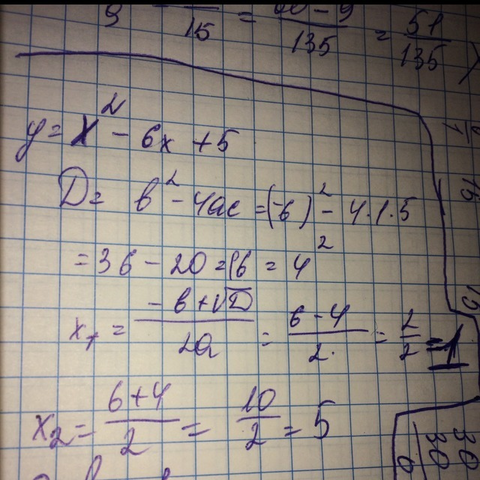 15 = 60-9/135 = 51/135
y = x² - 6x + 5
D = b² - 4ac = (-6)² - 4·1·5
= 36 - 20 = 16 = 4²
x₁ = -b+√D/2a = 6-4/2 = 2/2 = 1
x₂ = 6+4/2 = 10/2 = 5